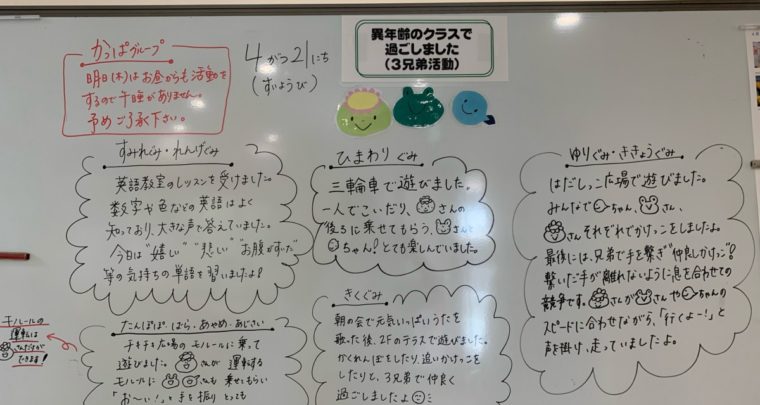 かっぱグループ
明日(木)はお昼からも活動を
するので午睡がありません。
予めご了承下さい。
4がつ21にち
(すいようび)
異年齢のクラスで
過ごしました
(3兄弟活動)
すみれぐみ・れんげぐみ
英語教室のレッスンを受けました。
数字や色などの英語はよく
知っており、大きな声で答えていました。
今日は"嬉しい" "悲しい" "お腹がすいた"
等の気持ちの単語を習いましたよ!
ひまわりぐみ
三輪車で遊びました。
一人でこいだり、さんの
後ろに乗せてもらう、さんと
ちゃん!とても楽しんでいました。
ゆりぐみ・ききょうぐみ
はだしっこ広場で遊びました。
みんなでちゃん、さん、
さんそれぞれでかけっこをしましたよ。
最後には、兄弟で手を繋ぎ"仲良しかけっこ"!
繋いだ手が離れないように息を合わせての
競争です。さんがさんやちゃんの
スピードに合わせながら、「行くよー!」と
声を掛け、走っていましたよ。
モノレールの
運転は
さんだけが
できます!
たんぽぽ・ばら・あやめ・あじさい
チキチキ広場のモノレールに乗って
遊びました。さんが運転する
モノレールにさんも乗せてもらい
「お〜い!」と手を振り とっても
きくぐみ
朝の会で元気いっぱいうたを
歌った後、2Fのテラスで遊びました。
かくれんぼをしたり、追いかけっこを
したりと、3兄弟で仲良く
過ごしましたよ